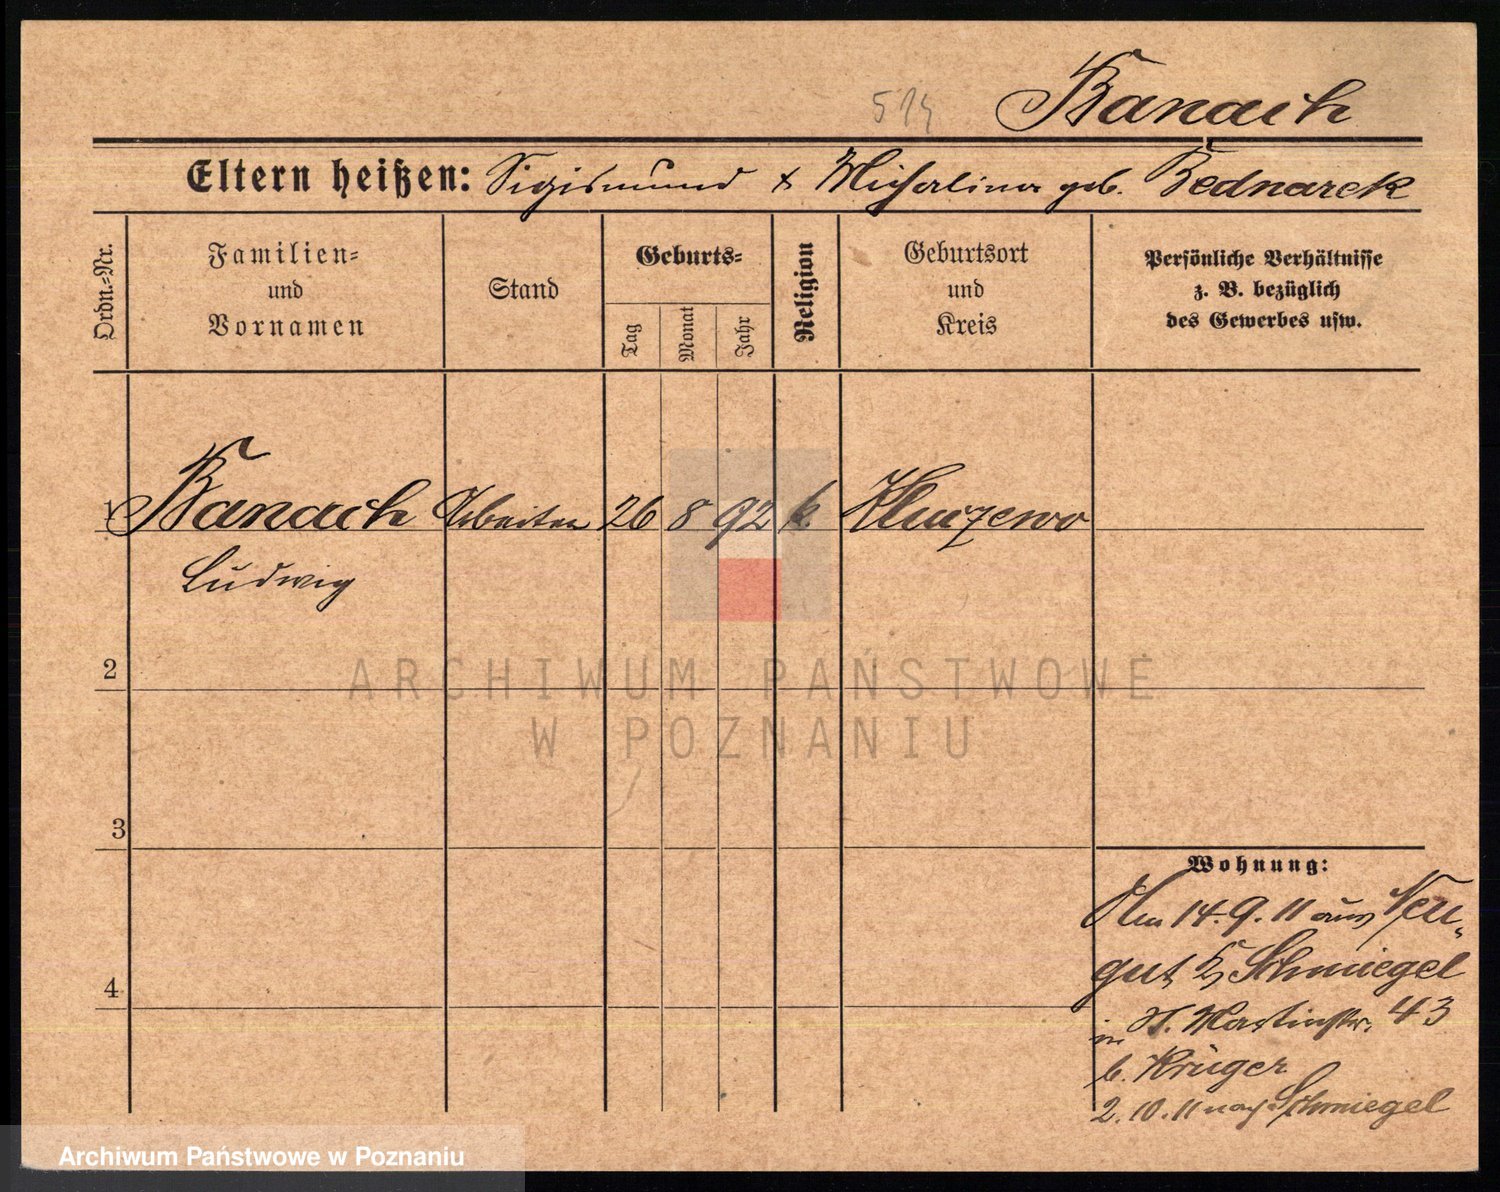 514
Banach
Eltern heißen: Sigismund & Michalina geb. Bednarek
Ordn.-Nr.
Familien-
und
Vornamen
Stand
Geburts-
Tag
Monat
Jahr
Religion
Geburtsort
und
Kreis
Persönliche Verhältnisse
z. B. bezüglich
des Gewerbes usw.
1 Banach Arbeiter 26 8 92 k. Kluczewo
Ludwig
2
ARCHIWUM PAŃSTWOWE
W POZNANIU
3
Wohnung:
Am 14.9.11 aus Neu-
gut Schmiegel
4
in St. Martinstr. 43
b. Krüger
2.10.11 nach Schmiegel
Archiwum Państwowe w Poznaniu